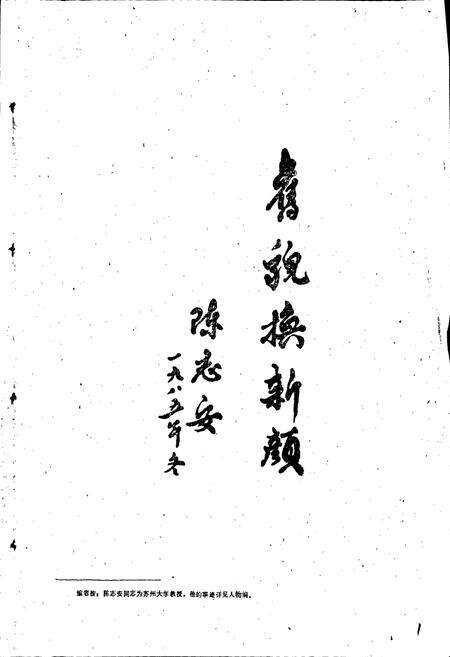 舊貌換新顏
陈志安
一九八五年冬
编者按：陈志安同志为苏州大学教授，他的事迹详见人物编。
1